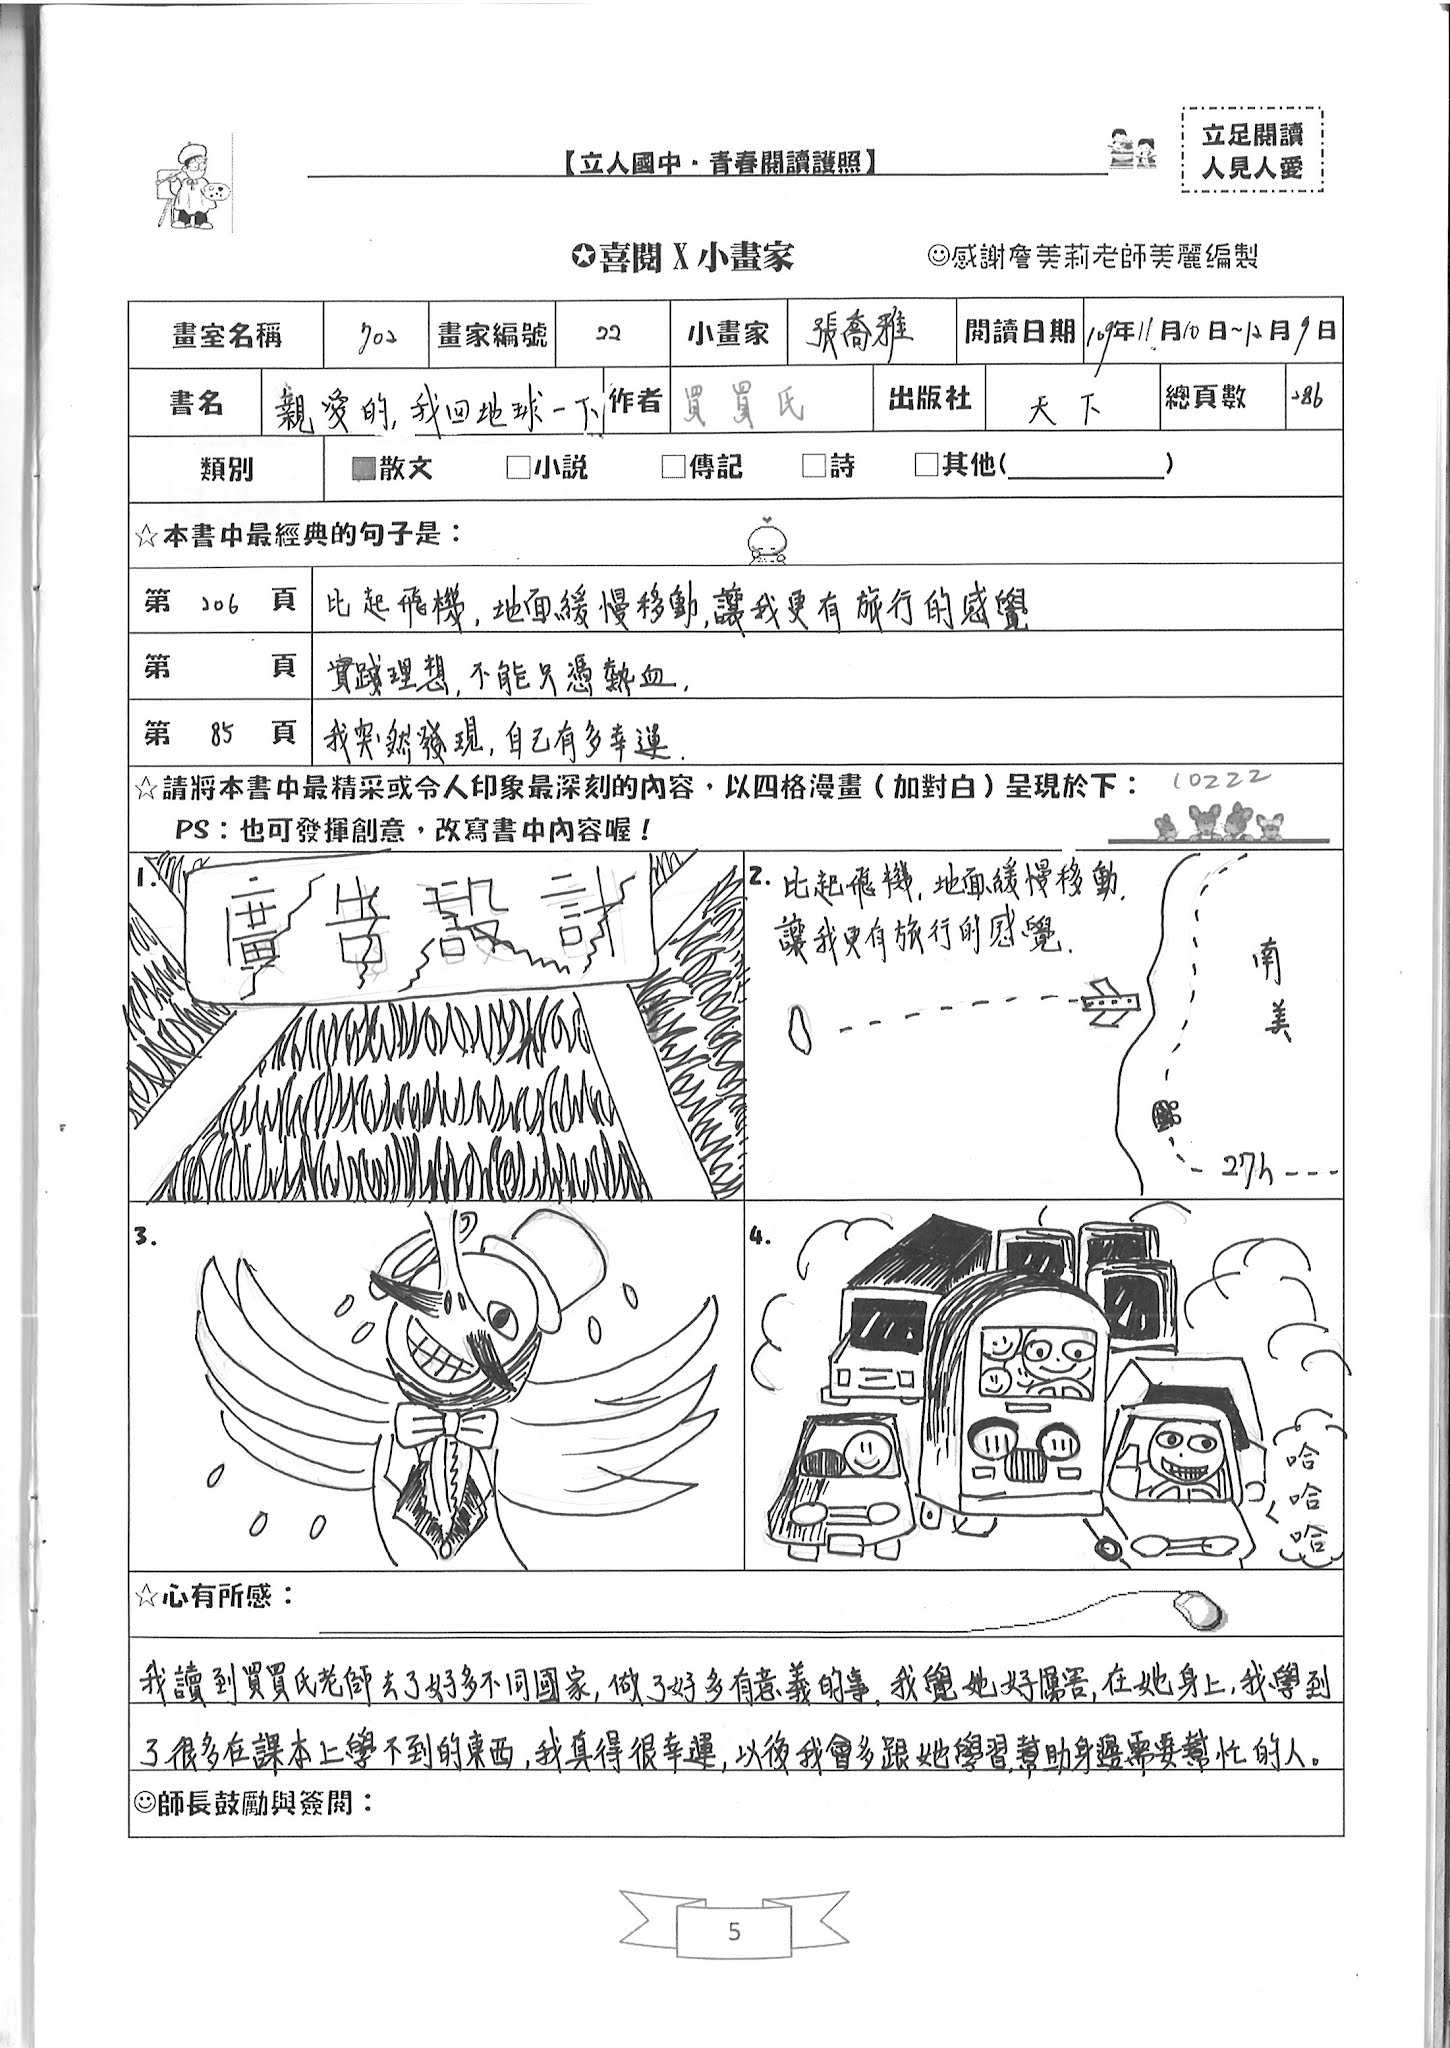 立足閱讀
人見人愛
【立人國中·青春閱讀護照】
✪喜閱 X 小畫家
☺感謝詹美莉老師美麗編製
畫室名稱 702 畫家編號 22 小畫家 張喬雅 閱讀日期 109年11月10日~12月9日
書名 親愛的,我回地球一下 作者 買買氏 出版社 天下 總頁數 286
類別 ■散文 □小說 □傳記 □詩 □其他(__________)
☆本書中最經典的句子是：
第 206 頁 比起飛機,地面緩慢移動,讓我更有旅行的感覺
第 頁 實踐理想,不能只憑熱血.
第 85 頁 我突然發現,自己有多幸運.
☆請將本書中最精采或令人印象最深刻的內容，以四格漫畫（加對白）呈現於下： 10222
PS：也可發揮創意，改寫書中內容喔！
1.
廣告設計
2.
比起飛機,地面緩慢移動.
讓我更有旅行的感覺.
南美
27h
3.
4.
哈
哈
哈
☆心有所感：
我讀到買買氏老師去了好多不同國家,做了好多有意義的事.我覺她好厲害,在她身上,我學到
了很多在課本上學不到的東西,我真得很幸運,以後我會多跟她學習,幫助身邊需要幫忙的人。
☺師長鼓勵與簽閱：
5